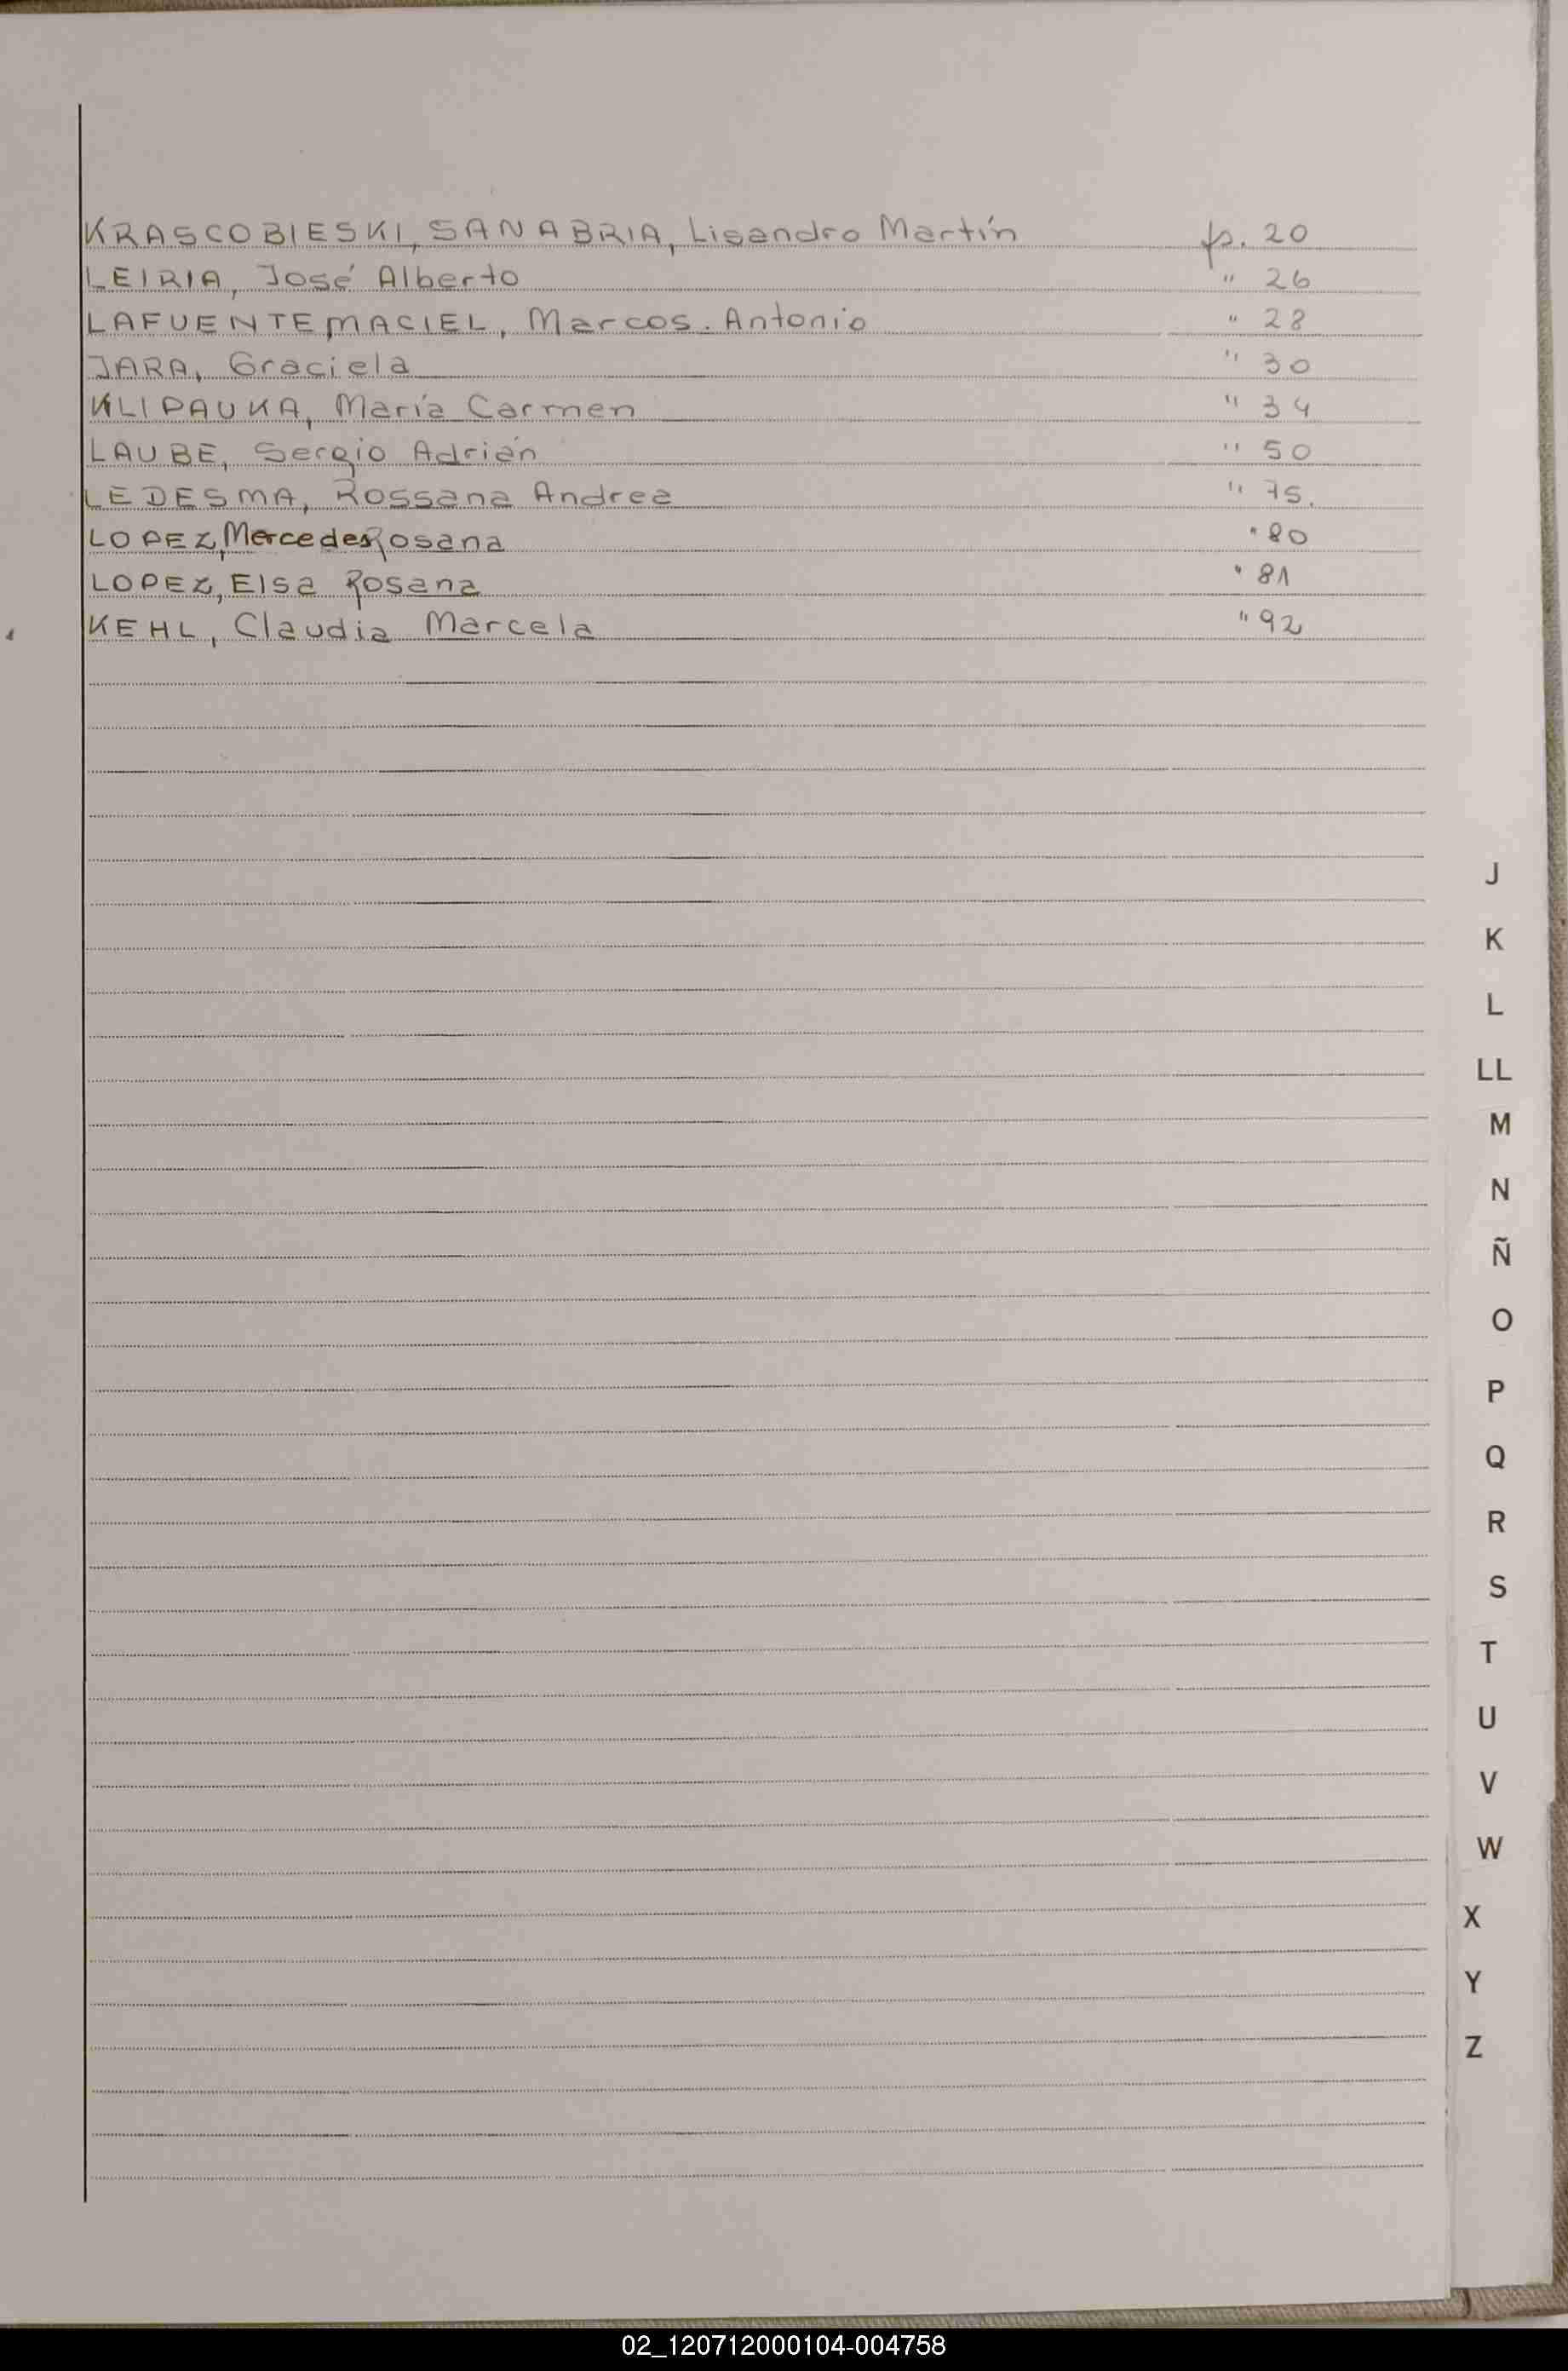 KRASCOBIESKI, SANABRIA, Lisandro Martín p. 20
LEIRIA, José Alberto " 26
LAFUENTE MACIEL, Marcos. Antonio " 28
JARA, Graciela " 30
KLIPAUKA, María Carmen " 34
LAUBE, Sergio Adrián " 50
LEDESMA, Rossana Andrea " 75.
LOPEZ, Mercedes Rosana " 80
LOPEZ, Elsa Rosana " 81
KEHL, Claudia Marcela " 92
J
K
L
LL
M
N
Ñ
O
P
Q
R
S
T
U
V
W
X
Y
Z
02_120712000104-004758